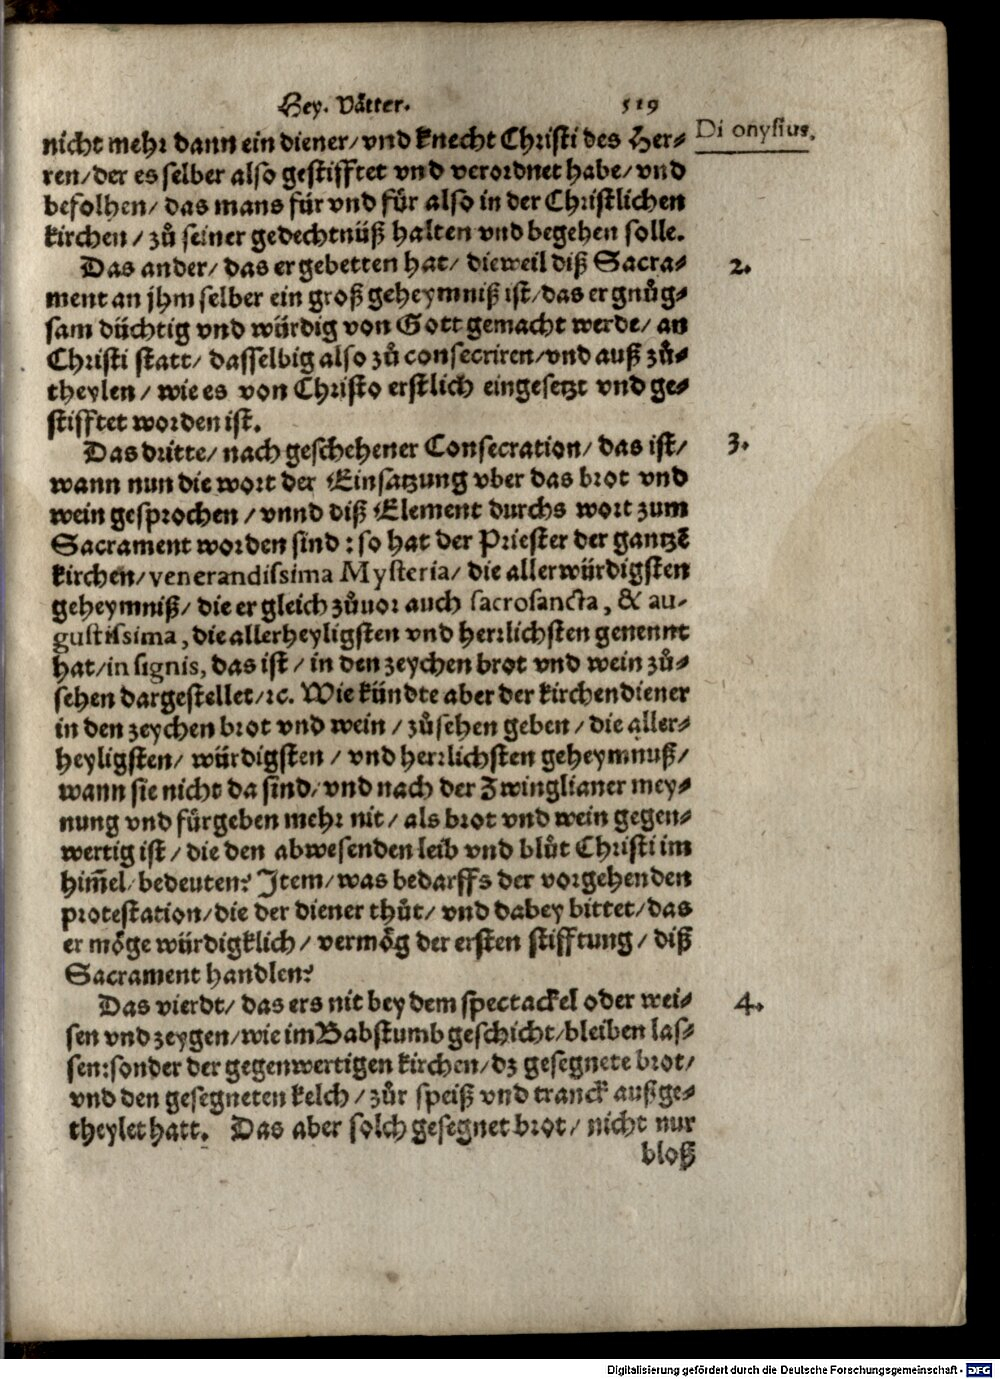 Hey. Vaͤtter. 519
nicht mehr dann ein diener/ vnd knecht Christi des Her⸗
Di onysius.
ren/ der es selber also gestifftet vnd verordnet habe/ vnd
befolhen/ das mans für vnd für also in der Christlichen
kirchen/ zuͦ seiner gedechtnüß halten vnd begehen solle.
Das ander/ das er gebetten hat/ dieweil diß Sacra⸗
2.
ment an jhm selber ein groß geheymniß ist/ das er gnuͦg⸗
sam düchtig vnd würdig von Gott gemacht werde/ an
Christi statt/ dasselbig also zuͦ consecriren/ vnd auß zuͦ⸗
theylen/ wie es von Christo erstlich eingesetzt vnd ge⸗
stifftet worden ist.
Das dritte/ nach geschehener Consecration/ das ist/
3.
wann nun die wort der Einsatzung vber das brot vnd
wein gesprochen/ vnnd diß Element durchs wort zum
Sacrament worden sind: so hat der Priester der gantzẽ
kirchen/ venerandissima Mysteria/ die allerwürdigsten
geheymniß/ die er gleich zuͦuor auch sacrosancta, & au-
gustissima, die allerheyligsten vnd herrlichsten genennt
hat/ in signis, das ist/ in den zeychen brot vnd wein zuͦ⸗
sehen dargestellet/ ꝛc. Wie kündte aber der kirchendiener
in den zeychen brot vnd wein/ zuͦsehen geben/ die aller⸗
heyligsten/ würdigsten/ vnd herrlichsten geheymnuß/
wann sie nicht da sind/ vnd nach der Zwinglianer mey⸗
nung vnd fürgeben mehr nit/ als brot vnd wein gegen⸗
wertig ist/ die den abwesenden leib vnd bluͦt Christi im
him̃el/ bedeuten? Item/ was bedarffs der vorgehenden
protestation/ die der diener thuͦt/ vnd dabey bittet/ das
er moͤge würdigklich/ vermoͤg der ersten stifftung/ diß
Sacrament handlen?
Das vierdt/ das ers nit bey dem spectackel oder wei⸗
4.
sen vnd zeygen/ wie im Babstumb geschicht/ bleiben las⸗
sen: sonder der gegenwertigen kirchen/ dz gesegnete brot/
vnd den gesegneten kelch/ zuͦr speiß vnd tranck außge⸗
theylet hatt. Das aber solch gesegnet brot/ nicht nur
bloß
Digitalisierung gefördert durch die Deutsche Forschungsgemeinschaft - DFG